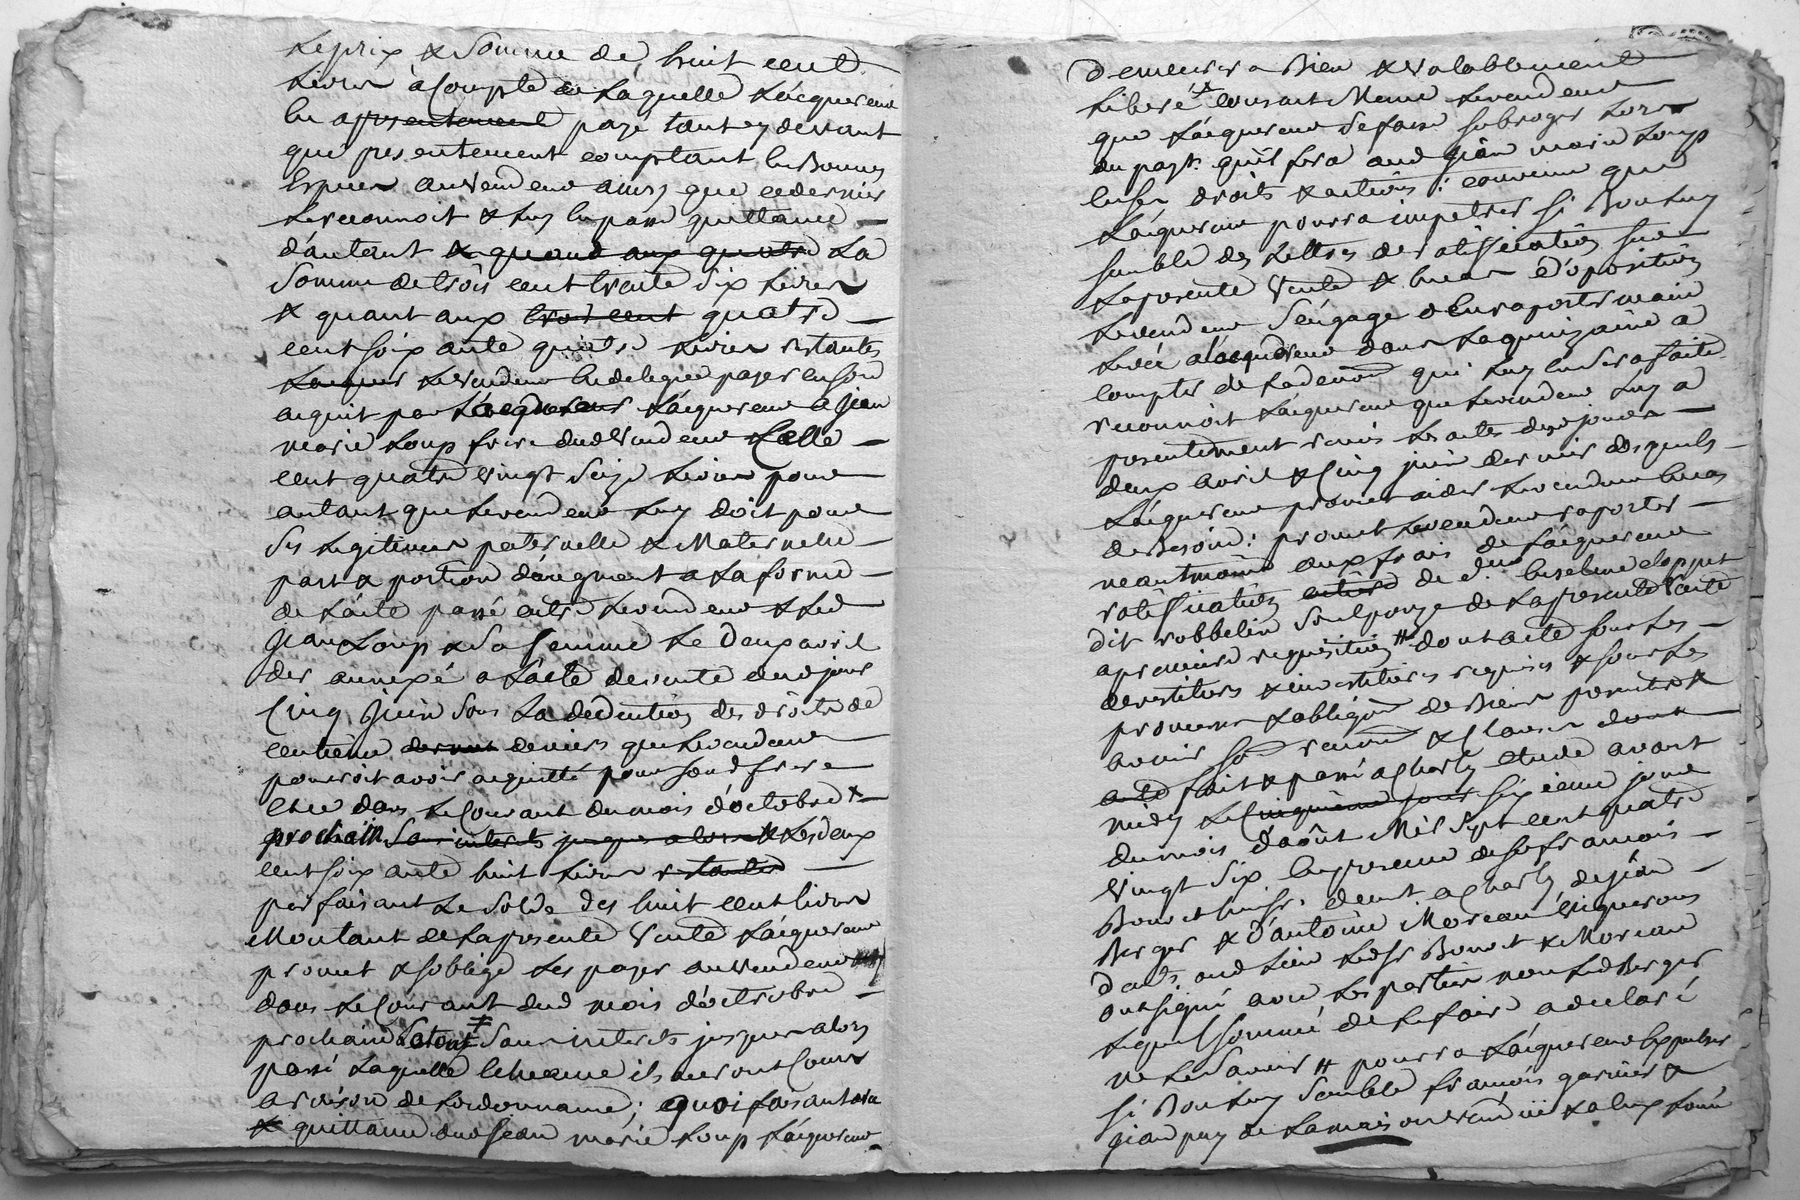 Le prix & Somme de huit cent
Livres àCompte de Laquelle Lacquereur
en a presentement payé tant cy devant
que presentement comptant en Bonnes
Especes au vendeur ainsy que ce dernier
Le reconnoit & Luy en passe quittance
d'autant & quand aux quatre La
Somme de trois cent trente Six Livres
& quant aux trois cent quatre
cent soix ante quatre Livres restantes
Le vendeur en delegue payer en son
acquit par Lacquereur Lacquereur a Jean
marie Loup frere dud vendeur Celle
cent quatre vingt Seize Livres pour
autant que Le vendeur Luy doit pour
Ses Legitimes paternelle & Maternelle
part & portion d'augment a La forme
de Lacte passé entre Le vendeur & Led
Jean Loup & Sa femme Le Deux avril
der annexé a Lacte de vente dud jour
Cinq Juin Sous La deduction des droits de
centieme deniers que Le vendeur
pourroit avoir acquitté pour Sond frere
& ce dans Le Courant du mois d'octobre
prochain Sans interets jusques alors & Les deux
cent soix ante huit Livres restantes
parfaisant Le Solde des huit cent livres
Montant de La presente vente Lacquereur
promet & soblige Les payer au vendeur
dans Le Courant dud mois d'octobre
prochain Le tout Sans interets jusques alors
passé Laquelle Echeance ils auront Cours
a raison de Lordonnance; quoi faisant
& quittance dud Jean marie Loup Lacquereur
Demeurera Bien & valablement
Liberé Consent Meme Le vendeur
que Lacquereur Se fasse subroger Lors
du payt. qu'il fera aud Jean marie Loup
en ses droits & actions: convenu que
Lacquereur pourra impetrer Si Bon Luy
Semble des Lettres de ratiffication Sur
La presente vente & en cas d'oposition
Le vendeur S'engage d'en raporter main
Levée a Lacquereur dans La quinzaine a
compter de La denon qui Luy en Sera faite
reconnoit Lacquereur que Le vendeur Luy a
presentement remis Les actes desd jours
deux avril & Cinq juin dernier desquels
Lacquereur promet aider Le vendeur en cas
de Besoin: promet Le vendeur raporter
neantmoins aux frais de Lacquereur
ratiffication de
dit robbelin Son epouze de La presente vente
a premiere requisition dont acte sous Les
devestitures & investitures requises & sous Les
promesses & obligaon de Biens presents &
avenir & Clauses dont
acte fait & passé a Charly etude avant
midy Le Cinquieme jour Sixieme jour
du mois d'août Mil Sept cent quatre
vingt Six en presence de Sr francois
Benoit demt. a Charly de Jean
Berger & d'antoine Moreau vignerons
demts. aud Lieu Lesd Sr Benoit & Moreau
ont signé avec Les parties non Led Berger
Lequel sommé de Le faire a declaré
ne Le Savoir # pourra Lacquereur Expulser
Si Bon Luy Semble francois garnier &
Jean puy de La maison vendüe & a Eux Louée